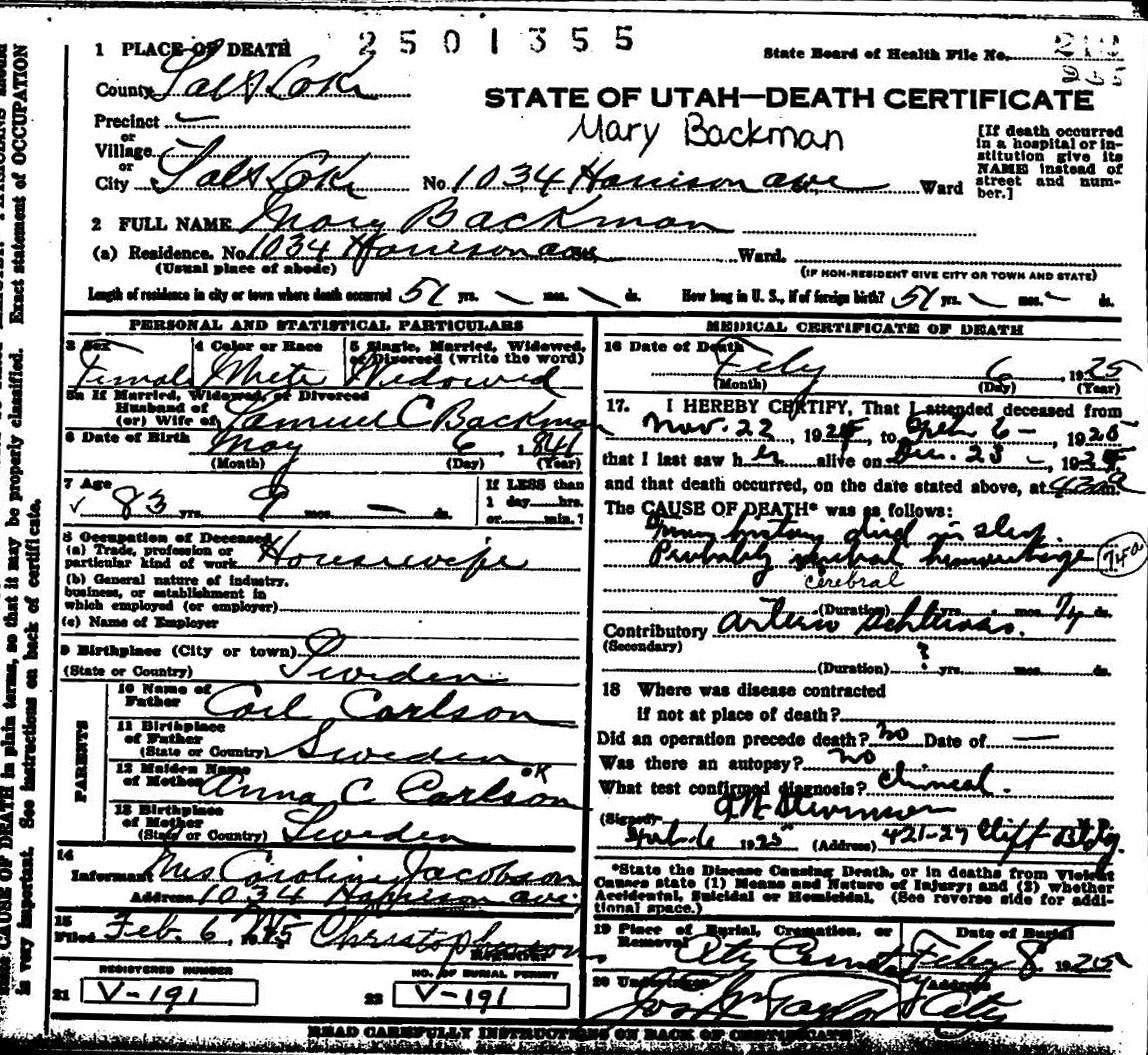 2501355
1 PLACE OF DEATH
State Board of Health File No.
County Salt Lake
STATE OF UTAH—DEATH CERTIFICATE
Mary Backman
Precinct
or
Village
or
City Salt Lake No. 1034 Harrison ave Ward
[If death occurred
in a hospital or in-
stitution give its
NAME instead of
street and num-
ber.]
2 FULL NAME Mary Backman
(a) Residence. No. 1034 Harrison ave Ward.
(Usual place of abode)
(IF NON-RESIDENT GIVE CITY OR TOWN AND STATE)
Length of residence in city or town where death occurred 51 yrs. mos. ds. How long in U. S., if of foreign birth? 51 yrs. mos. ds.
PERSONAL AND STATISTICAL PARTICULARS
3 Sex 4 Color or Race 5 Single, Married, Widowed,
or Divorced (write the word)
Female White Widowed
5a If Married, Widowed, or Divorced
Husband of
(or) Wife of Samuel C Backman
6 Date of Birth May 6, 1841
(Month) (Day) (Year)
7 Age
83 yrs. 9 mos. — ds.
If LESS than
1 day hrs.
or min.?
8 Occupation of Deceased
(a) Trade, profession or
particular kind of work Housewife
(b) General nature of industry,
business, or establishment in
which employed (or employer)
(c) Name of Employer
9 Birthplace (City or town)
(State or Country) Sweden
PARENTS
10 Name of
Father Carl Carlson
11 Birthplace
of Father
(State or Country) Sweden
12 Maiden Name
of Mother Anna C Carlson OK
13 Birthplace
of Mother
(State or Country) Sweden
14
Informant Mrs Caroline Jacobson
Address 1034 Harrison ave
15
Filed Feb. 6
REGISTERED NUMBER NO. OF BURIAL PERMIT
21 V-191 22 V-191
MEDICAL CERTIFICATE OF DEATH
16 Date of Death Feby 6, 1925
(Month) (Day) (Year)
17. I HEREBY CERTIFY, That I attended deceased from
Nov. 22, 1924, to Feb 6 —, 1925
that I last saw her alive on Dec. 23 —, 1924,
and that death occurred, on the date stated above, at m.
The CAUSE OF DEATH* was as follows:
From history died in sleep
Probably cerebral hemorrhage 74a
cerebral
(Duration) yrs. mos. ds.
Contributory Arterio Sclerosis.
(Secondary)
(Duration) ? yrs. mos. ds.
18 Where was disease contracted
if not at place of death?
Did an operation precede death? no Date of —
Was there an autopsy? no
What test confirmed diagnosis? Clinical.
(Signed)
Feb 6 1925 (Address) 421-27 Clift Bldg.
*State the Disease Causing Death, or in deaths from Violent
Causes state (1) Means and Nature of Injury; and (2) whether
Accidental, Suicidal or Homicidal. (See reverse side for addi-
tional space.)
19 Place of Burial, Cremation, or
Removal Date of Burial
City Cemetery Feby 8, 1925
20 Undertaker Address
Jos Wm Taylor City
READ CAREFULLY INSTRUCTIONS ON BACK OF CERTIFICATE
CAUSE OF DEATH in plain terms, so that it may be properly classified. Exact statement of OCCUPATION
is very important. See instructions on back of certificate.